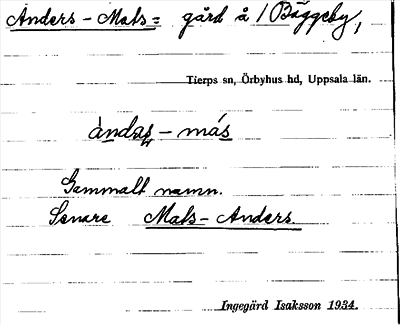 Anders-Mats= gård å /Bäggeby,
Tierps sn, Örbyhus hd, Uppsala län.
àndas̩-más
Gammalt namn.
Senare Mats-Anders.
Ingegärd Isaksson 1934.